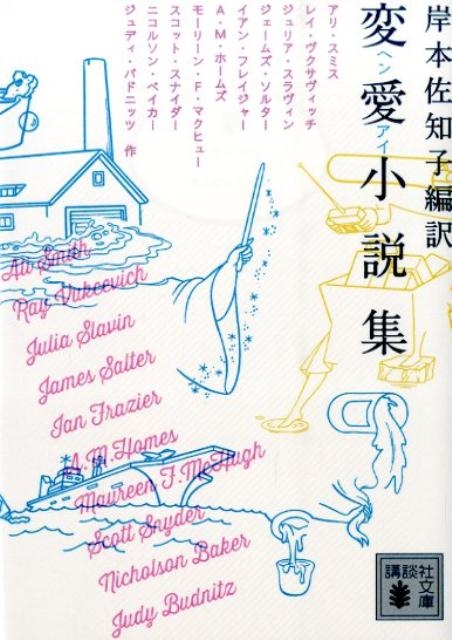 岸本佐知子編訳
変愛小説集
ヘンアイ
アリ・スミス
レイ・ヴクサヴィッチ
ジュリア・スラヴィン
ジェームズ・ソルター
イアン・フレイジャー
A・M・ホームズ
モーリーン・F・マクヒュー
スコット・スナイダー
ニコルソン・ベイカー
ジュディ・バドニッツ 作
Ali Smith
Ray Vukcevich
Julia Slavin
James Salter
Ian Frazier
A.M.Homes
Maureen F.McHugh
Scott Snyder
Nicholson Baker
Judy Budnitz
講談社
文庫